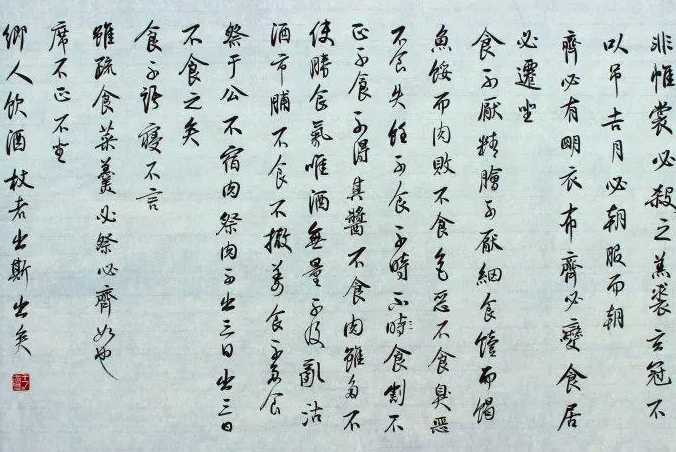 非惟裳必殺之羔裘玄冠不
以吊吉月必朝服而朝
齊必有明衣布齊必變食居
必遷坐
食不厭精膾不厭細食饐而餲
魚餒而肉敗不食色惡不食臭惡
不食失飪不食不時不時食割不
正不食不得其醬不食肉雖多不
使勝食氣唯酒無量不及亂沽
酒市脯不食不撤薑食不多食
祭于公不宿肉祭肉不出三日出三日
不食之矣
食不語寢不言
雖疏食菜羹必祭必齊如也
席不正不坐
鄉人飲酒杖者出斯出矣